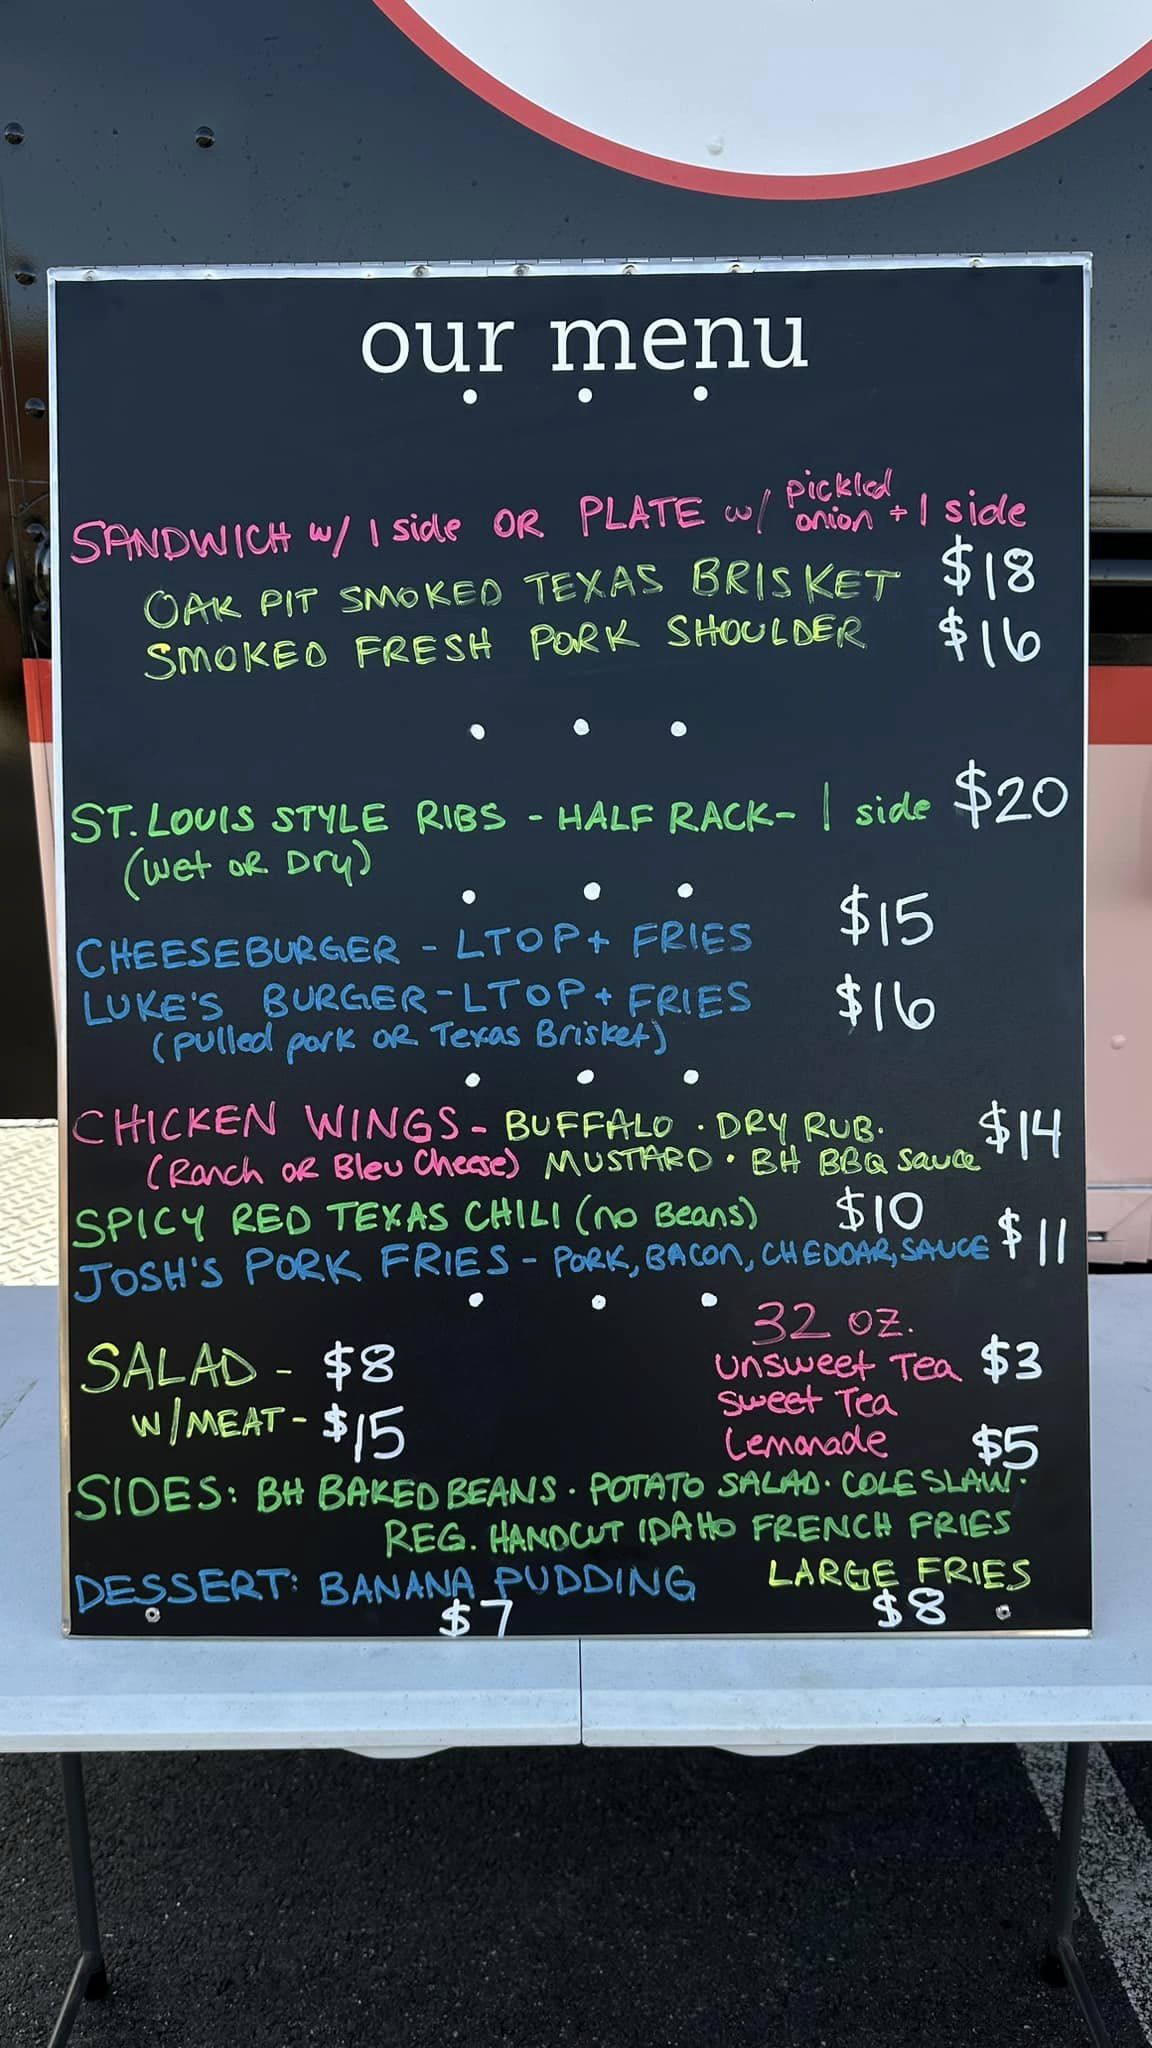 our menu
SANDWICH w/ 1 side OR PLATE w/ pickled onion + 1 side
OAK PIT SMOKED TEXAS BRISKET $18
SMOKED FRESH PORK SHOULDER $16
ST. LOUIS STYLE RIBS - HALF RACK - 1 side $20
(Wet OR Dry)
CHEESEBURGER - LTOP + FRIES $15
LUKE'S BURGER - LTOP + FRIES $16
(Pulled pork OR Texas Brisket)
CHICKEN WINGS - BUFFALO · DRY RUB · $14
(Ranch OR Bleu Cheese) MUSTARD · BH BBQ Sauce
SPICY RED TEXAS CHILI (no Beans) $10
JOSH'S PORK FRIES - PORK, BACON, CHEDDAR, SAUCE $11
32 oz.
SALAD - $8
W/MEAT - $15
Unsweet Tea $3
Sweet Tea
Lemonade $5
SIDES: BH BAKED BEANS · POTATO SALAD · COLE SLAW ·
REG. HANDCUT IDAHO FRENCH FRIES
DESSERT: BANANA PUDDING
$7
LARGE FRIES
$8